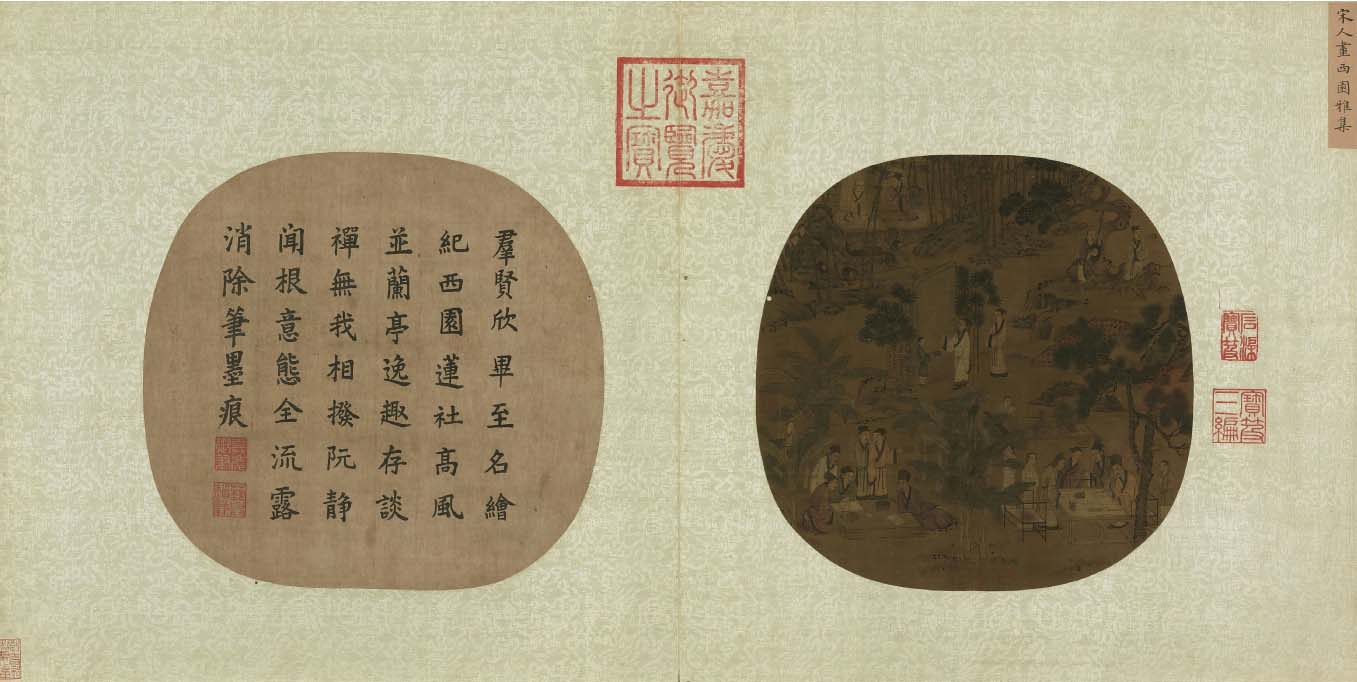 宋人畫西園雅集
嘉慶
御覽
之寶
寶笈
三編
羣賢欣畢至名繪
紀西園蓮社高風
並蘭亭逸趣存談
禪無我相撥阮静
闻根意態全流露
消除筆墨痕